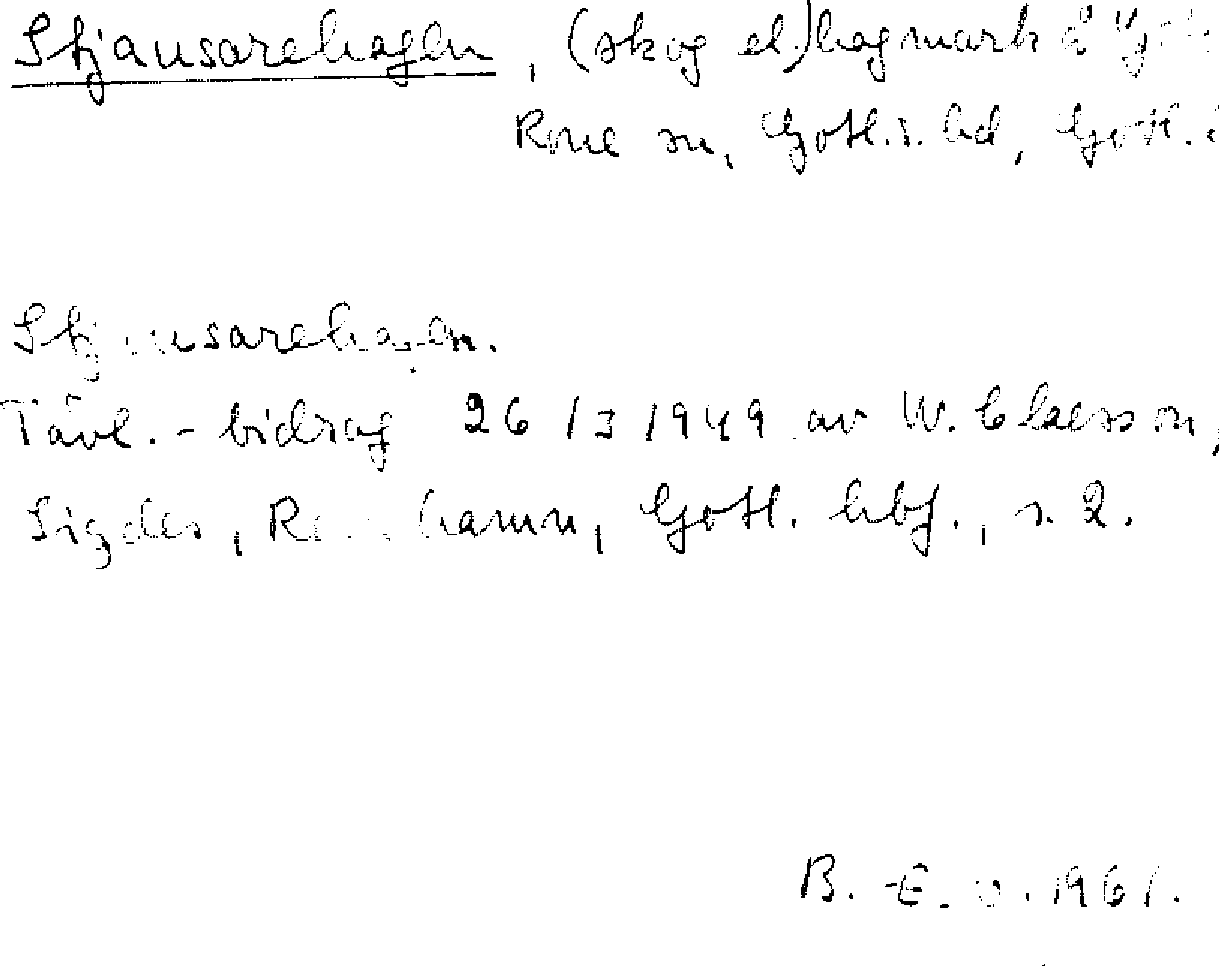 Stjausarehagen, (skog el.) hagmark å
Rone sn, Gotl. s. hd, Gotl.
Stjausarehagen.
Tävl.-bidrag 26/3 1949 av W. Claesson,
Sigdes, Ronehamn, Gotl. hbf., s. 2.
B. -E. O. 1961.